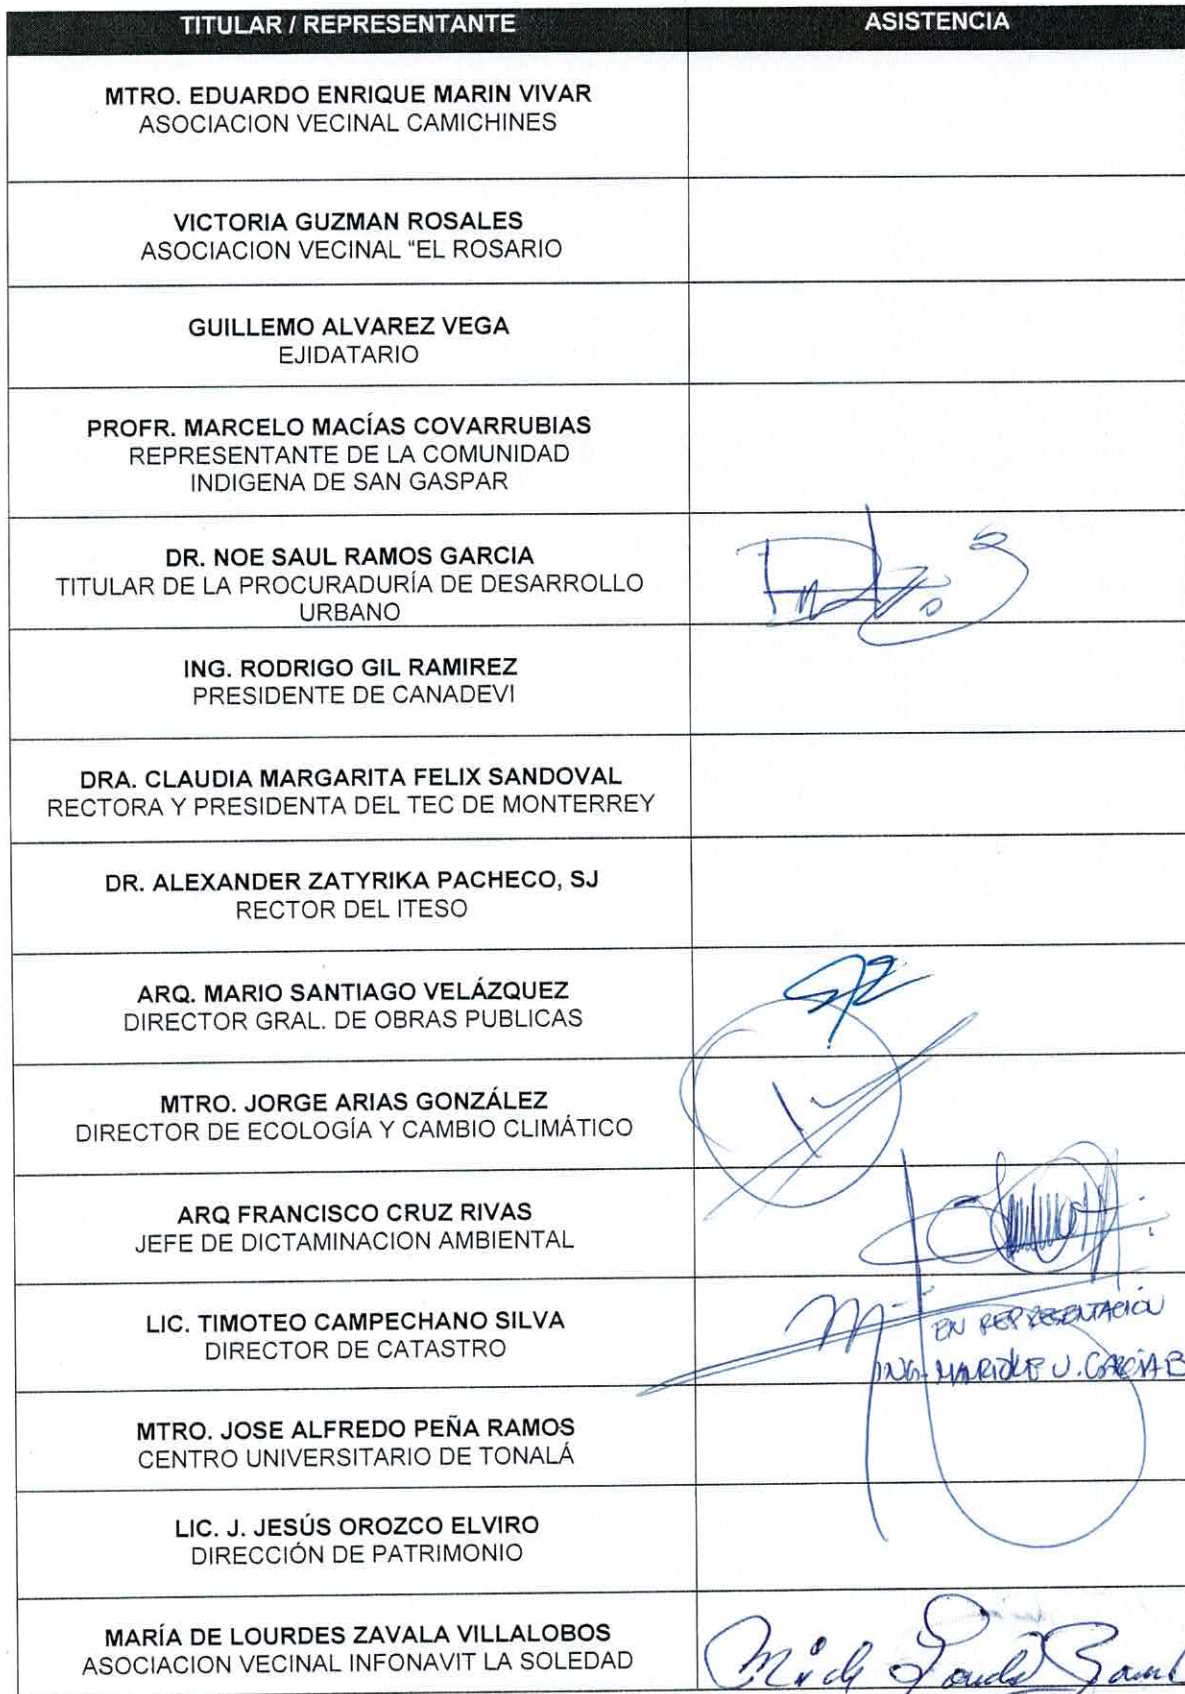 TITULAR / REPRESENTANTE ASISTENCIA
MTRO. EDUARDO ENRIQUE MARIN VIVAR
ASOCIACION VECINAL CAMICHINES
VICTORIA GUZMAN ROSALES
ASOCIACION VECINAL “EL ROSARIO
GUILLEMO ALVAREZ VEGA
EJIDATARIO
PROFR. MARCELO MACÍAS COVARRUBIAS
REPRESENTANTE DE LA COMUNIDAD
INDIGENA DE SAN GASPAR
DR. NOE SAUL RAMOS GARCIA
TITULAR DE LA PROCURADURÍA DE DESARROLLO
URBANO
ING. RODRIGO GIL RAMIREZ
PRESIDENTE DE CANADEVI
DRA. CLAUDIA MARGARITA FELIX SANDOVAL
RECTORA Y PRESIDENTA DEL TEC DE MONTERREY
DR. ALEXANDER ZATYRIKA PACHECO, SJ
RECTOR DEL ITESO
ARQ. MARIO SANTIAGO VELÁZQUEZ
DIRECTOR GRAL. DE OBRAS PUBLICAS
MTRO. JORGE ARIAS GONZÁLEZ
DIRECTOR DE ECOLOGÍA Y CAMBIO CLIMÁTICO
ARQ FRANCISCO CRUZ RIVAS
JEFE DE DICTAMINACION AMBIENTAL
LIC. TIMOTEO CAMPECHANO SILVA
DIRECTOR DE CATASTRO
EN REPRESENTACIÓN
ING. U. GARCÍA B
MTRO. JOSE ALFREDO PEÑA RAMOS
CENTRO UNIVERSITARIO DE TONALÁ
LIC. J. JESÚS OROZCO ELVIRO
DIRECCIÓN DE PATRIMONIO
MARÍA DE LOURDES ZAVALA VILLALOBOS
ASOCIACION VECINAL INFONAVIT LA SOLEDAD